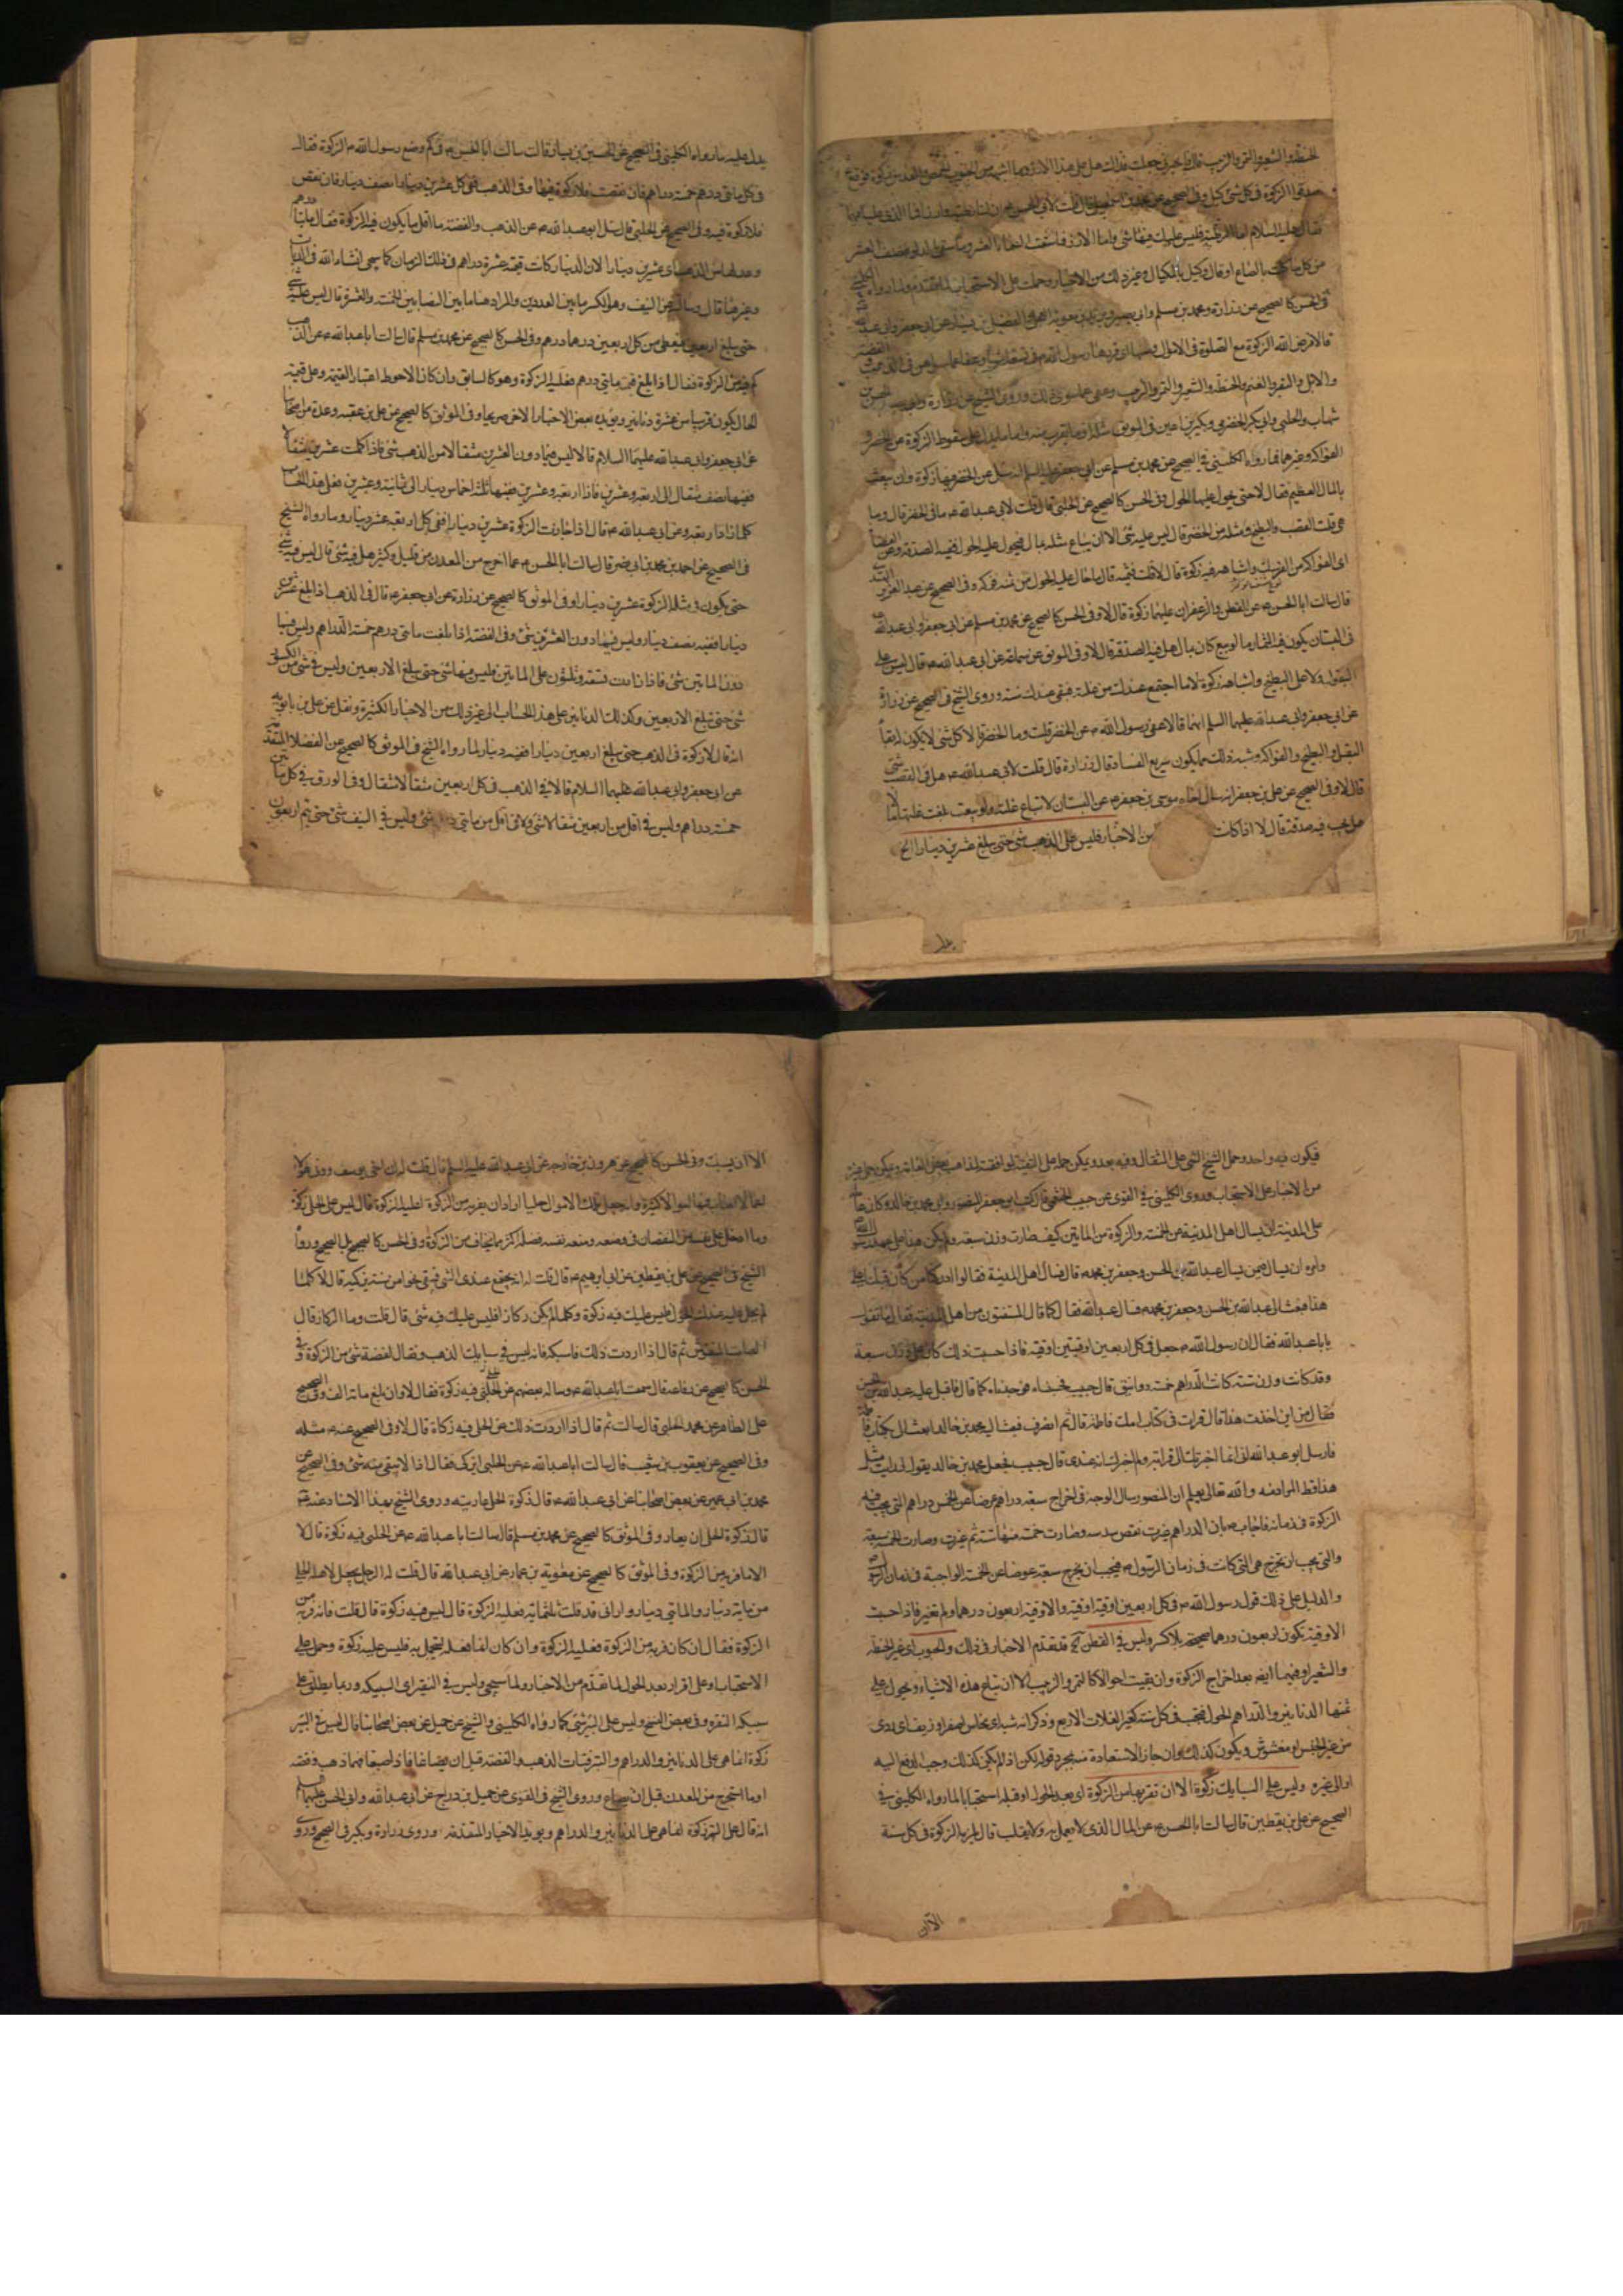 الحنطة والشعير والتمر والزبيب قال فاخبرني جعلت فداك هل على هذا الارز وما اشبهه من الحبوب الحمص والعدس زكوة فوقع ع
صدقوا الزكوة فى كل شئ كيل وفى الصحيح عن محمد بن اسمعيل قال قلت لابي الحسن ان لنا رطبة وارزا فما الذى علينا فيها
فقال عليه السلام اما الرطبة فليس عليك فيها شئ واما الارز فما سقت السماء العشر وما سقى بالدلو فنصف العشر
من كل ما كلت بالصاع او قال وكيل بالمكيال وغير ذلك من الاخبار وحملت على الاستحباب لما تقدم ولما رواه الكليني
فى الحسن كالصحيح عن زرارة ومحمد بن مسلم وابى بصير وبريد بن معوية العجلى والفضيل بن يسار عن ابى جعفر وابى عبد الله
قالا فرض الله الزكوة مع الصلوة فى الاموال وسنها رسول الله فى تسعة اشياء وعفا عما سواهن فى الذهب والفضة
والابل والبقر والغنم والحنطة والشعير والتمر والزبيب وعفى عما سوى ذلك وروى الشيخ عن زرارة وابى الحسن بن
شهاب والحلبى وابى بكر الحضرمى وبكير بن اعين فى الموثق مثله وما يقرب منه واما ما يدل على سقوط الزكوة عن الخضر و
الفواكه وغيرهما فما رواه الكلينى فى الصحيح عن محمد بن مسلم عن ابى جعفر عليه السلم انه سئل عن الخضر فيها زكوة وان بيعت
بالمال العظيم فقال لا حتى يحول عليها الحول وفى الحسن كالصحيح عن الحلبى قال قلت لابى عبد الله ما فى الخضر قال وما
هى قلت القضب والبطيخ ومثله من الخضر قال ليس عليه شئ الا ان يباع مثله بمال فيحول عليه الحول ففيه الصدقة وعن العضاة
اى الفواكه من الفرسك واشباهه فيه زكوة قال لا قلت فثمنه قال ما حال عليه الحول من ثمنه فزكه وفى الصحيح عن عبد العزيز
قال سالت ابا الحسن عن القطن والزعفران عليهما زكوة قال لا وفى الحسن كالصحيح عن محمد بن مسلم عن ابى جعفر وابى عبد الله
فى البستان يكون فيه الثمار ما لو بيع كان بمال هل فيه الصدقة قال لا وفى الموثق عن سماعة عن ابى عبد الله قال ليس على
البقول ولا على البطيخ واشباهه زكوة الا ما اجتمع عندك من غلته فبقى عندك سنة وروى الشيخ فى الصحيح عن زرارة
عن ابى جعفر وابى عبد الله عليهما السلم انهما قالا عفى رسول الله عن الخضر قلت وما الخضر قالا كل شئ لا يكون له بقاء
البقل والبطيخ والفواكه وشبه ذلك مما يكون سريع الفساد قال زرارة قال قلت لابى عبد الله هل فى القصب شئ
قال لا وفى الصحيح عن على بن جعفر انه سال اخاه موسى بن جعفر عن البستان لا تباع غلته ولو بيعت بلغت غلتها مالا
هل يجب فيه صدقة قال لا اذا كانت من الاخبار فليس على الذهب شئ حتى يبلغ عشرين دينارا الخ
يدل
يدل عليه ما رواه الكلينى فى الصحيح عن الحسين بن يسار قال سالت ابا الحسن فى كم وضع رسول الله الزكوة فقال
فى كل مائتى درهم خمسة دراهم فان نقصت فلا زكوة فيها وفى الذهب ففى كل عشرين دينارا نصف دينار فان نقص
فلا زكوة فيه وفى الصحيح عن الحلبى قال سئل ابو عبد الله عن الذهب والفضة ما اقل ما يكون فيه الزكوة فقال مائتا درهم
وعدلها من الذهب اى عشرين دينارا لان الدينار كانت قيمته عشرة دراهم فى ذلك الزمان كما سيجى انشاء الله فى الديات
وغيرها قال وسالته عن النيف وهو الكسر ما بين العددين والمراد هنا ما بين النصابين الخمسة والعشرة قال ليس عليه شئ
حتى يبلغ اربعين فيعطى من كل اربعين درهما درهم وفى الحسن كالصحيح عن محمد بن مسلم قال سالت ابا عبد الله عن الذهب
كم فيه من الزكوة فقال اذا بلغ قيمته مائتى درهم فعليه الزكوة وهو كالسابق وان كان الاحوط اعتبار القيمة وعلى قيمته
الحال يكون قريبا من عشرة دنانير ويؤيده بعض الاخبار الاخر صريحا وفى الموثق كالصحيح عن على بن عقبة وعدة من اصحابنا
عن ابى جعفر وابى عبد الله عليهما السلام قالا ليس فيما دون العشرين مثقالا من الذهب شئ فاذا كملت عشرين مثقالا
ففيها نصف مثقال الى اربعة وعشرين فاذا اربعة وعشرين ففيها ثلثة اخماس دينار الى ثمانية وعشرين فعلى هذا الحساب
كلما زاد اربعة وعن ابى عبد الله قال اذا جازت الزكوة عشرين دينارا ففى كل اربعة عشر دينار وما رواه الشيخ
فى الصحيح عن احمد بن محمد بن ابى نصر قال سالت ابا الحسن عما اخرج من المعدن من قليل وكثير هل فيه شئ قال ليس فيه شئ
حتى يكون فى مثله الزكوة عشرين دينارا وفى الموثق كالصحيح عن زرارة عن ابى جعفر قال فى الذهب اذا بلغ عشرين
دينارا ففيه نصف دينار وليس فيما دون العشرين شئ وفى الفضة اذا بلغت مائتى درهم خمسة الدراهم وليس فيما
دون المائتين شئ فاذا زادت تسعة وثلثون على المائتين فليس فيها شئ حتى يبلغ الاربعين وليس فى شئ من الكسور
شئ حتى تبلغ الاربعين وكذلك الدنانير على هذا الحساب الى غير ذلك من الاخبار الكثيرة ونقل عن على بن بابويه
انه قال لا زكوة فى الذهب حتى يبلغ اربعين دينارا ففيه دينار لما رواه الشيخ فى الموثق كالصحيح عن الفضلاء المتقدمين
عن ابى جعفر وابى عبد الله عليهما السلام قالا فى الذهب فى كل اربعين مثقالا مثقال وفى الورق فى كل مائتين
خمسة دراهم وليس فى اقل من اربعين مثقالا شئ ولا فى اقل من مائتى درهم شئ وليس فى النيف شئ حتى يتم اربعون
فيكون فيه واحد وحمل الشيخ الشئ على المثقال وفيه بعد ويمكن حمله على التقية لموافقته لمذاهب بعض العامة ويمكن حمل غيره
من الاخبار على الاستحباب وروى الكلينى فى القوى عن حبيب الخثعمى قال كتب ابو جعفر المنصور الى محمد بن خالد وكان عامله
على المدينة ان يسال اهل المدينة عن الخمسة والزكوة من المائتين كيف صارت وزن سبعة ولم يكن هذا على عهد رسول الله
وامره ان يسال فيمن يسال عبد الله بن الحسن وجعفر بن محمد قال فسال اهل المدينة فقالوا ادركنا من كان قبلنا على
هذا فبعث الى عبد الله بن الحسن وجعفر بن محمد فسال عبد الله فقال كما قال المستفتون من اهل المدينة فقال ما تقول
يا با عبد الله فقال ان رسول الله جعل فى كل اربعين اوقية اوقية فاذا حسبت ذلك كان على وزن سبعة
وقد كانت وزن ستة كانت الدراهم خمسة دوانيق قال حبيب فحسبناه فوجدناه كما قال فاقبل عليه عبد الله بن الحسن
فقال من اين اخذت هذا قال قرات فى كتاب امك فاطمة قال ثم انصرف فبعث اليه محمد بن خالد ابعث الى بكتاب فاطمة
فارسل ابو عبد الله انى انما اخبرتك انى قراته ولم اخبرك انه عندى قال حبيب فجعل محمد بن خالد يقول لى ما رايت مثل
هذا قط المراد منه والله تعالى يعلم ان المنصور سال الوجه فى اخراج سبعة دراهم عوضا عن الخمس دراهم التى يجب فيه
الزكوة فى زمانه فاجاب بان الدراهم غيرت بنقص سدسه وصارت خمسة منها ستة ثم غيرت وصارت الخمسة سبعة
والتى يجب ان يخرج هى التى كانت فى زمان الرسول فيجب ان يخرج سبعة عوضا عن الخمسة الواجبة فى زمان الرسول
والدليل على ذلك قول رسول الله فى كل اربعين اوقية اوقية والاوقية اربعون درهما ولم تغير فاذا حسبت
الاوقية تكون اربعون درهما صحيحة بلا كسر وليس فى القطن الخ قد تقدم الاخبار فى ذلك والحبوب اى غير الحنطة
والشعير او فيهما ايضا بعد اخراج الزكوة وان بقيت احوالا كالتمر والزبيب الا ان تباع هذه الاشياء ويحول على
ثمنها الدنانير والدراهم الحول فيجب فى كل سنة كغير الغلات الاربع وذكر انه شبه اى نحاس اصفر او زيف اى ردى
من غير الجنس او مغشوش ويكون كذلك وان جاز الاستعادة منه بمجرد قوله لكن اذا لم يكن كذلك وجب الدفع اليه
او الى غيره وليس على السبايك زكوة الا ان تفر بها من الزكوة اى بعد الحول او قبله استحبابا لما رواه الكلينى فى
الصحيح عن على بن يقطين قال سالت ابا الحسن عن المال الذى لا يعمل به ولا يقلب قال يلزمه الزكوة فى كل سنة
الا ان
الا ان يسبك وفى الحسن كالصحيح عن هرون بن خارجة عن ابى عبد الله عليه السلم قال قلت له ان اخى يوسف ولى لهؤلاء
اعمالا اصاب فيها اموالا كثيرة وانه جعل تلك الاموال حليا اراد ان يفر به من الزكوة اعليه الزكوة قال ليس على الحلى زكوة
وما ادخل على نفسه من النقصان فى وضعه ومنعه نفسه فضله اكثر مما يخاف من الزكوة وفى الحسن كالصحيح بل الصحيح ورواه
الشيخ فى الصحيح عن على بن يقطين عن ابى ابراهيم قال قلت له انه يجتمع عندى الشئ فيبقى نحوا من سنة نزكيه قال لا كلما
لم يحل عليه عندك الحول فليس عليك فيه زكوة وكلما لم يكن ركازا فليس عليك فيه شئ قال قلت وما الركاز قال
الصامت المنقوش ثم قال اذا اردت ذلك فاسبكه فانه ليس فى سبايك الذهب ونقار الفضة شئ من الزكوة وفى
الحسن كالصحيح عن رفاعة قال سمعت ابا عبد الله وساله بعضهم عن الحلى فيه زكوة فقال لا وان بلغ مائة الف وفى الصحيح
على الظاهر عن محمد الحلبى قال سالت ثم قال اذا اردت ذلك عن الحلى فيه زكاة قال لا وفى الصحيح عنه مثله
وفى الصحيح عن يعقوب بن شعيب قال سالت ابا عبد الله عن الحلى ايزكى فقال اذا لا يبقى منه شئ وفى الصحيح عن
محمد بن ابى عمير عن بعض اصحابنا عن ابى عبد الله قال زكوة الحلى عاريته وروى الشيخ بهذا الاسناد عنه
قال زكوة الحلى ان يعار وفى الموثق كالصحيح عن محمد بن مسلم قال سالت ابا عبد الله عن الحلى فيه زكوة قال لا
الا ما فر به من الزكوة وفى الموثق كالصحيح عن معوية بن عمار عن ابى عبد الله قال قلت له الرجل يجعل لاهله الحلى
من مائة دينار والمائتى دينار وارانى قد قلت ثلثمائة فعليه الزكوة قال ليس فيه زكوة قال قلت فانه فر به من
الزكوة فقال ان كان فر به من الزكوة فعليه الزكوة وان كان انما فعله ليتجمل به فليس عليه زكوة وحمل على
الاستحباب وعلى الفرار بعد الحول لما تقدم من الاخبار ولما سيجى وليس فى النقير اى السبيكة وربما يطلق على
سبيكة النقرة وفى بعض النسخ وليس على التبر شئ كما رواه الكلينى والشيخ عن جميل عن بعض اصحابنا قال ليس فى التبر
زكوة انما هى على الدنانير والدراهم والتبر فتات الذهب والفضة قبل ان يصاغا فاذا صيغا فهما ذهب وفضة
او ما استخرج من المعدن قبل ان يصاغ وروى الشيخ فى القوى عن جميل بن دراج عن ابى عبد الله وابى الحسن عليهما السلم
انه قال على التبر زكوة انما هى على الدنانير والدراهم ويؤيده الاخبار المتقدمة وروى زرارة وبكير فى الصحيح وروى